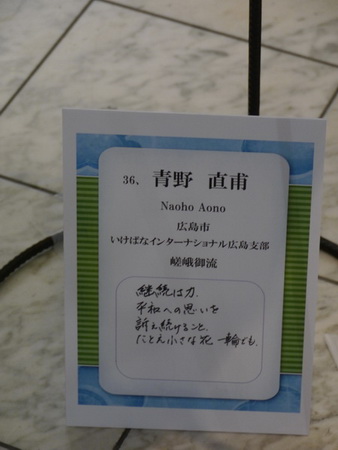 36、 青野 直甫
Naoho Aono
広島市
いけばなインターナショナル広島支部
嵯峨御流
継続は力.
平和への思いを
訴え続けること.
たとえ小さな花 一輪でも.